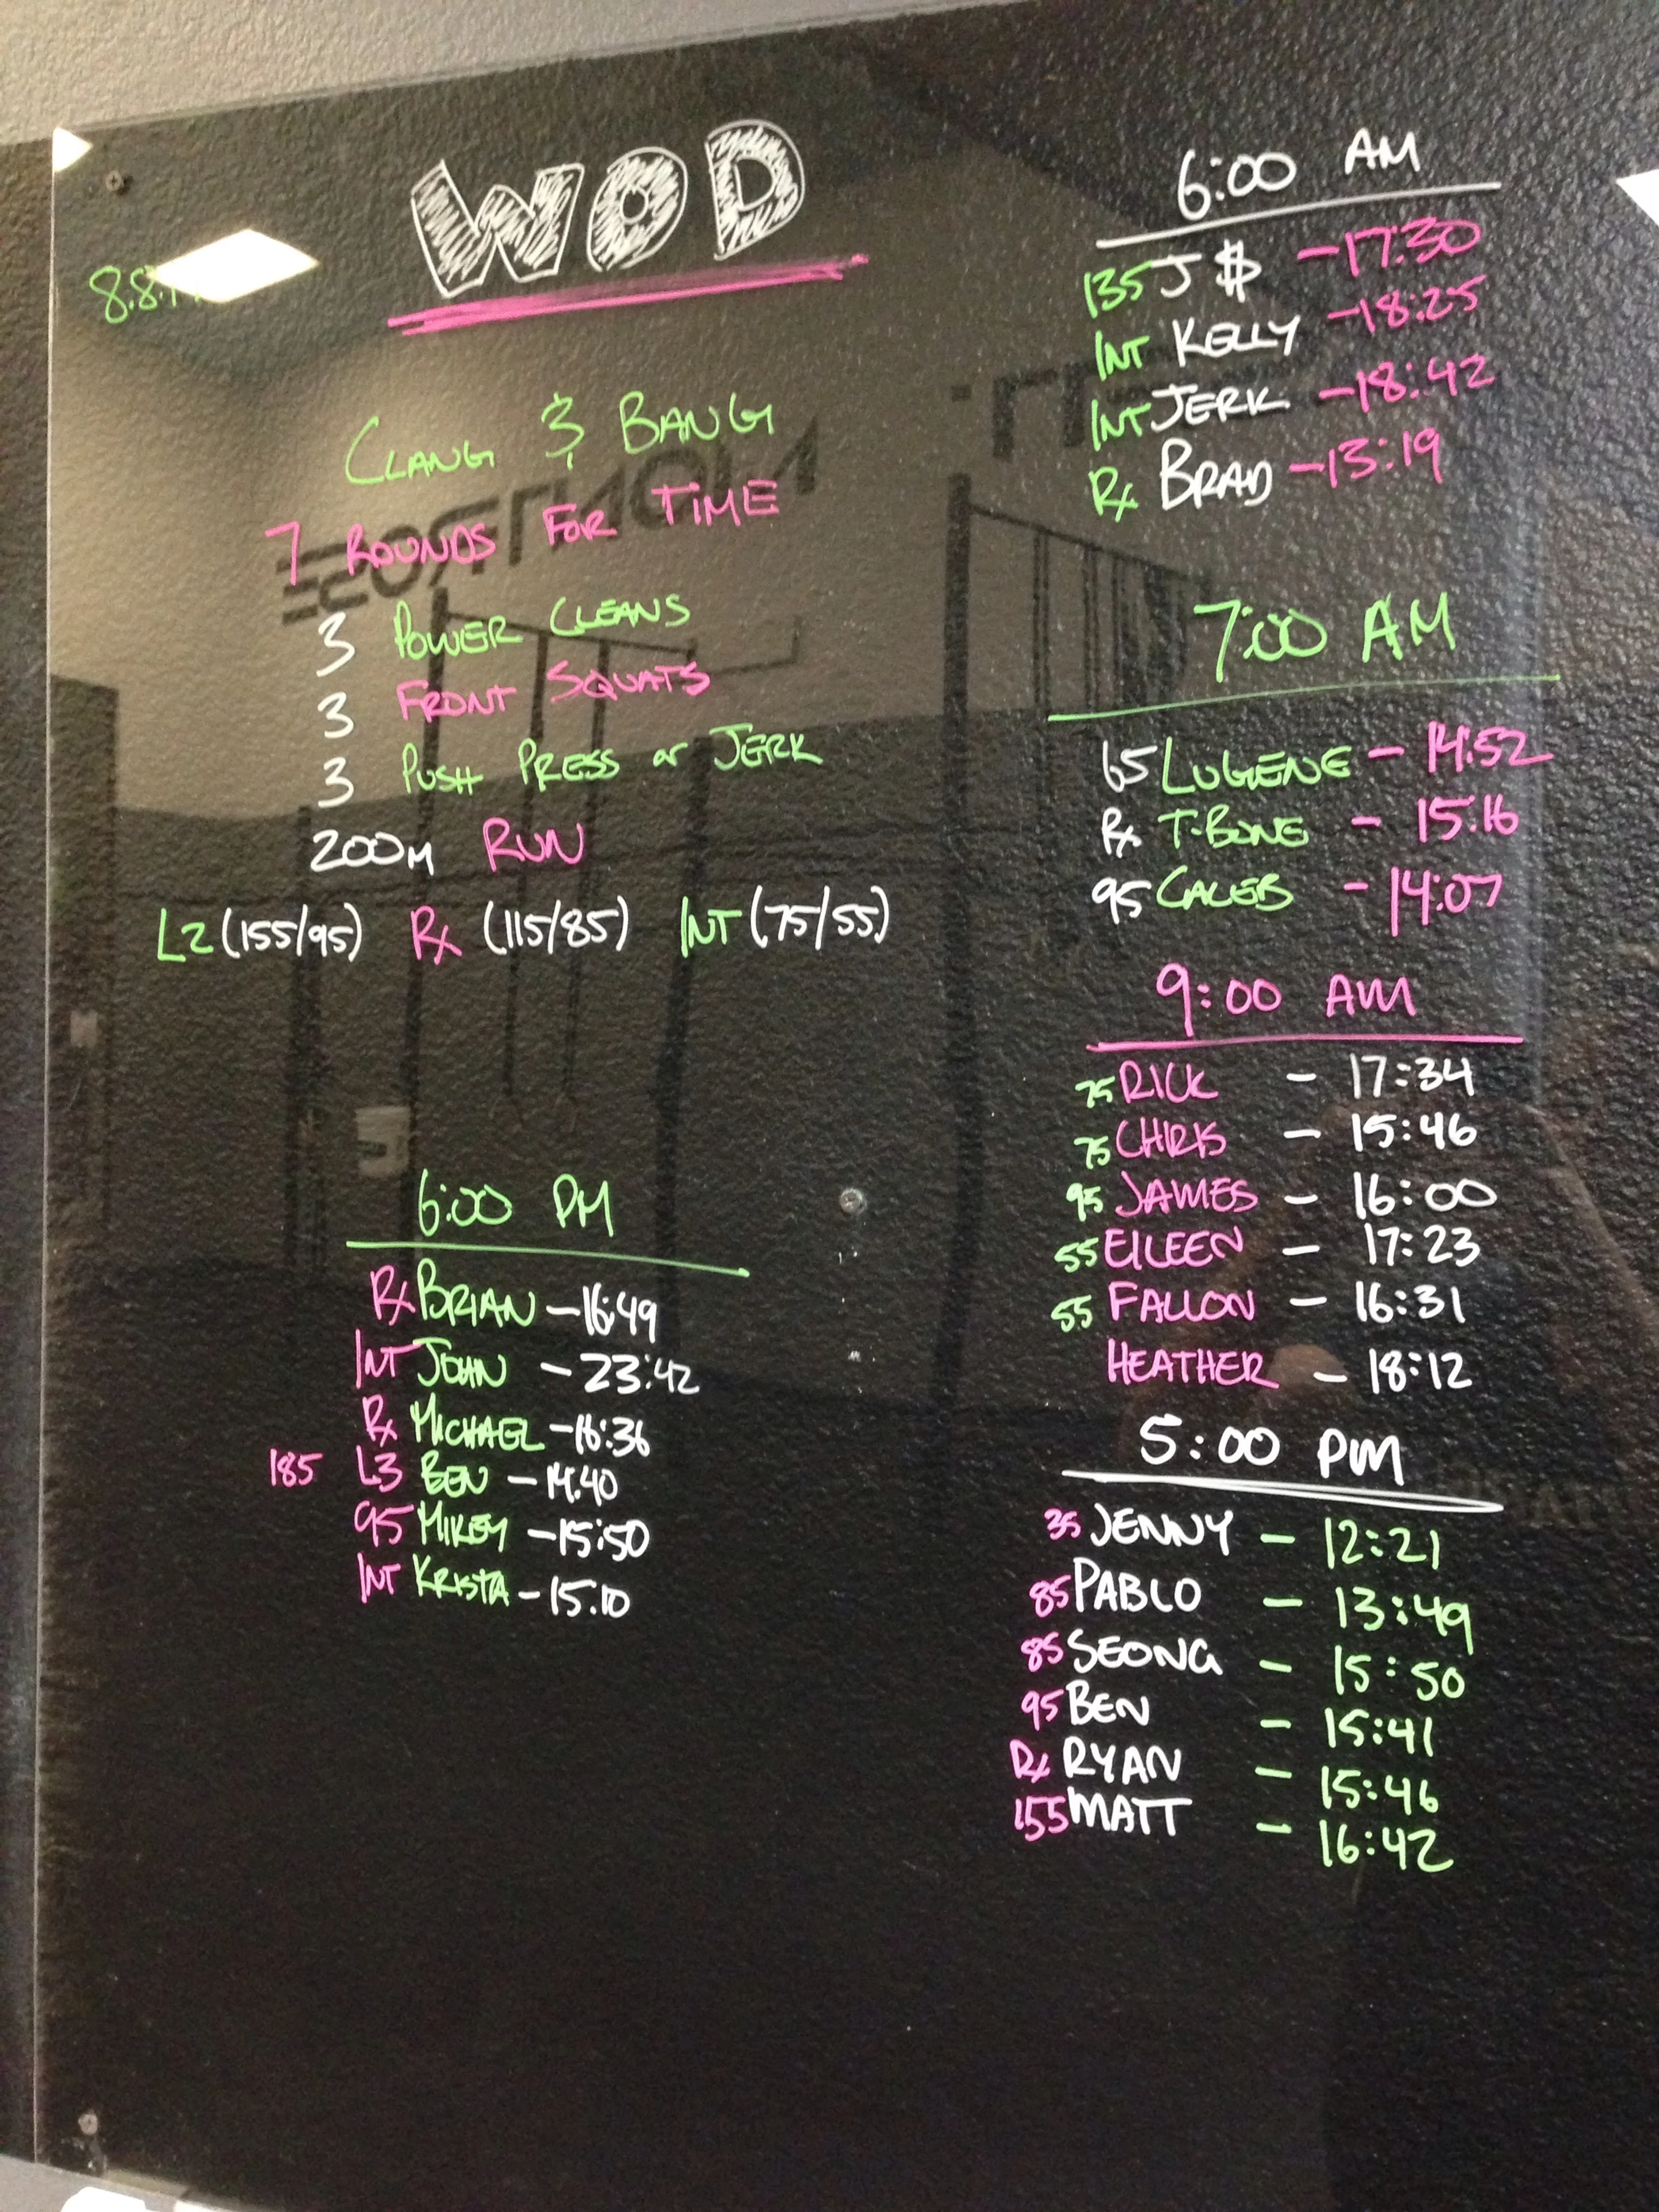 WOD
8.8.1
CLANG & BANG
7 ROUNDS FOR TIME
3 POWER CLEANS
3 FRONT SQUATS
3 PUSH PRESS or JERK
200M RUN
L2 (155/95) Rx (115/85) INT (75/55)
6:00 PM
Rx BRIAN - 16:49
INT JOHN - 23:42
Rx MICHAEL - 16:36
185 L3 BEN - 14.40
95 MIKEY - 15:50
INT KRISTA - 15.10
6:00 AM
135 J $ - 17:30
INT KELLY - 18:25
INT JERK - 18:42
Rx BRAD - 13:19
7:00 AM
65 LUGENE - 14:52
Rx T-BONE - 15:16
95 CALEB - 14:07
9:00 AM
75 RICK - 17:34
75 CHRIS - 15:46
95 JAMES - 16:00
55 EILEEN - 17:23
55 FALLON - 16:31
HEATHER - 18:12
5:00 PM
35 JENNY - 12:21
85 PABLO - 13:49
85 SEONG - 15:50
95 BEN - 15:41
Rx RYAN - 15:46
155 MATT - 16:42